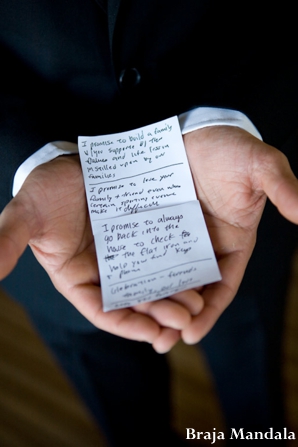 I promise to build a family
w/ your support of the
and life
instilled upon by our
families
I promise to love your
family + friends even when
certain sporting events
make it difficult
I promise to always
go back into the
house to check
the flat iron and
hold your hand
Celebration - friends
family and love
Braja Mandala